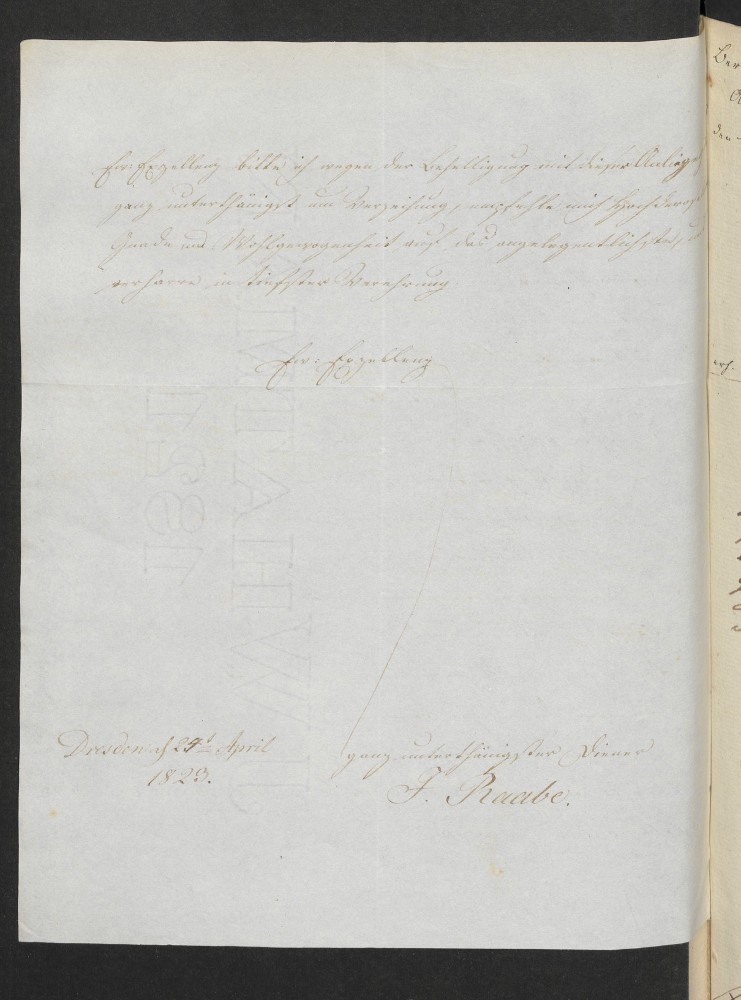 Ew: Exzellenz bitte ich wegen der Behelligung mit dieser Anlage
ganz unterthänigst um Verzeihung, empfehle mich Hochderen
Gnade und Wohlgewogenheit auf das angelegentlichste, u
verharre in tiefster Verehrung
Ew: Exzellenz
Dresden 24t April
1823.
ganz unterthänigster Diener
F. Raabe.
WHATMAN